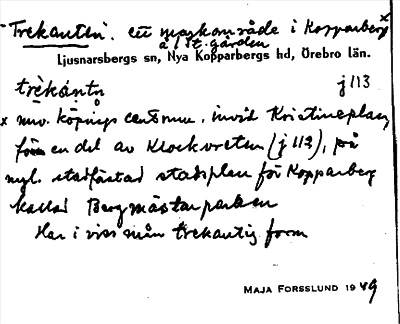 Trekanten. ett markområde i Kopparberg x
å St. gården
Ljusnarsbergs sn, Nya Kopparbergs hd, Örebro län.
trèkántn j 113
x nuv. köpings centrum, invid Kristineplan,
en del av Klockvreten (j 112), på
nyl. stadfästad stadsplan för Kopparberg
kallad Bergmästarparken
Har i viss mån trekantig form
MAJA FORSSLUND 1949